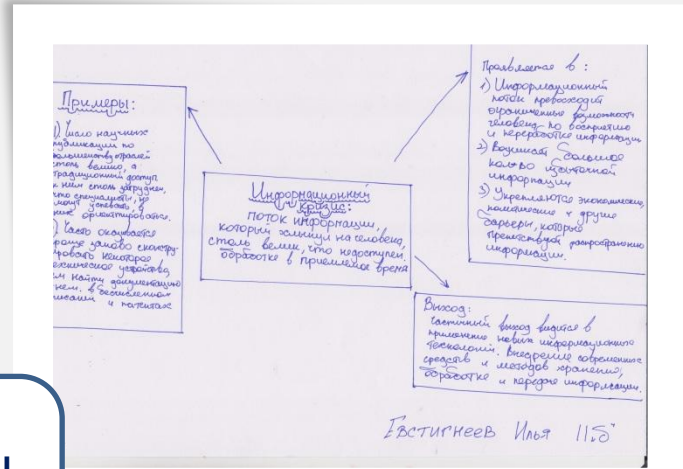 Примеры:
1) Число научных
публикации по
большинству отраслей
столь велико, а
традиционный доступ
к ним столь затруднен,
что специалисты, не
могут успевать, в
них ориентироваться.
Часто оказывается
проще заново сконстру-
ировать некоторое
техническое устройство,
чем найти документацию
о нем. в бесчисленном
описаний и патентах
Информационный
кризис:
поток информации,
который хлынул на человека,
столь велик, что недоступен
обработке в приемлемое время
Проявляется в:
1) Информационный
поток превосходит
ограниченные возможности
человека по восприятию
и переработке информации
2) Возникает большое
кол-во избыточной
информации
3) Укрепляются экономические,
политические и другие
барьеры, которые
препятствуют распространению
информации.
Выход:
частичный выход видится в
применение новых информационно
технологий. Внедрение современных
средств и методов хранения,
обработке и передаче информации.
Евстигнеев Илья 11"б"